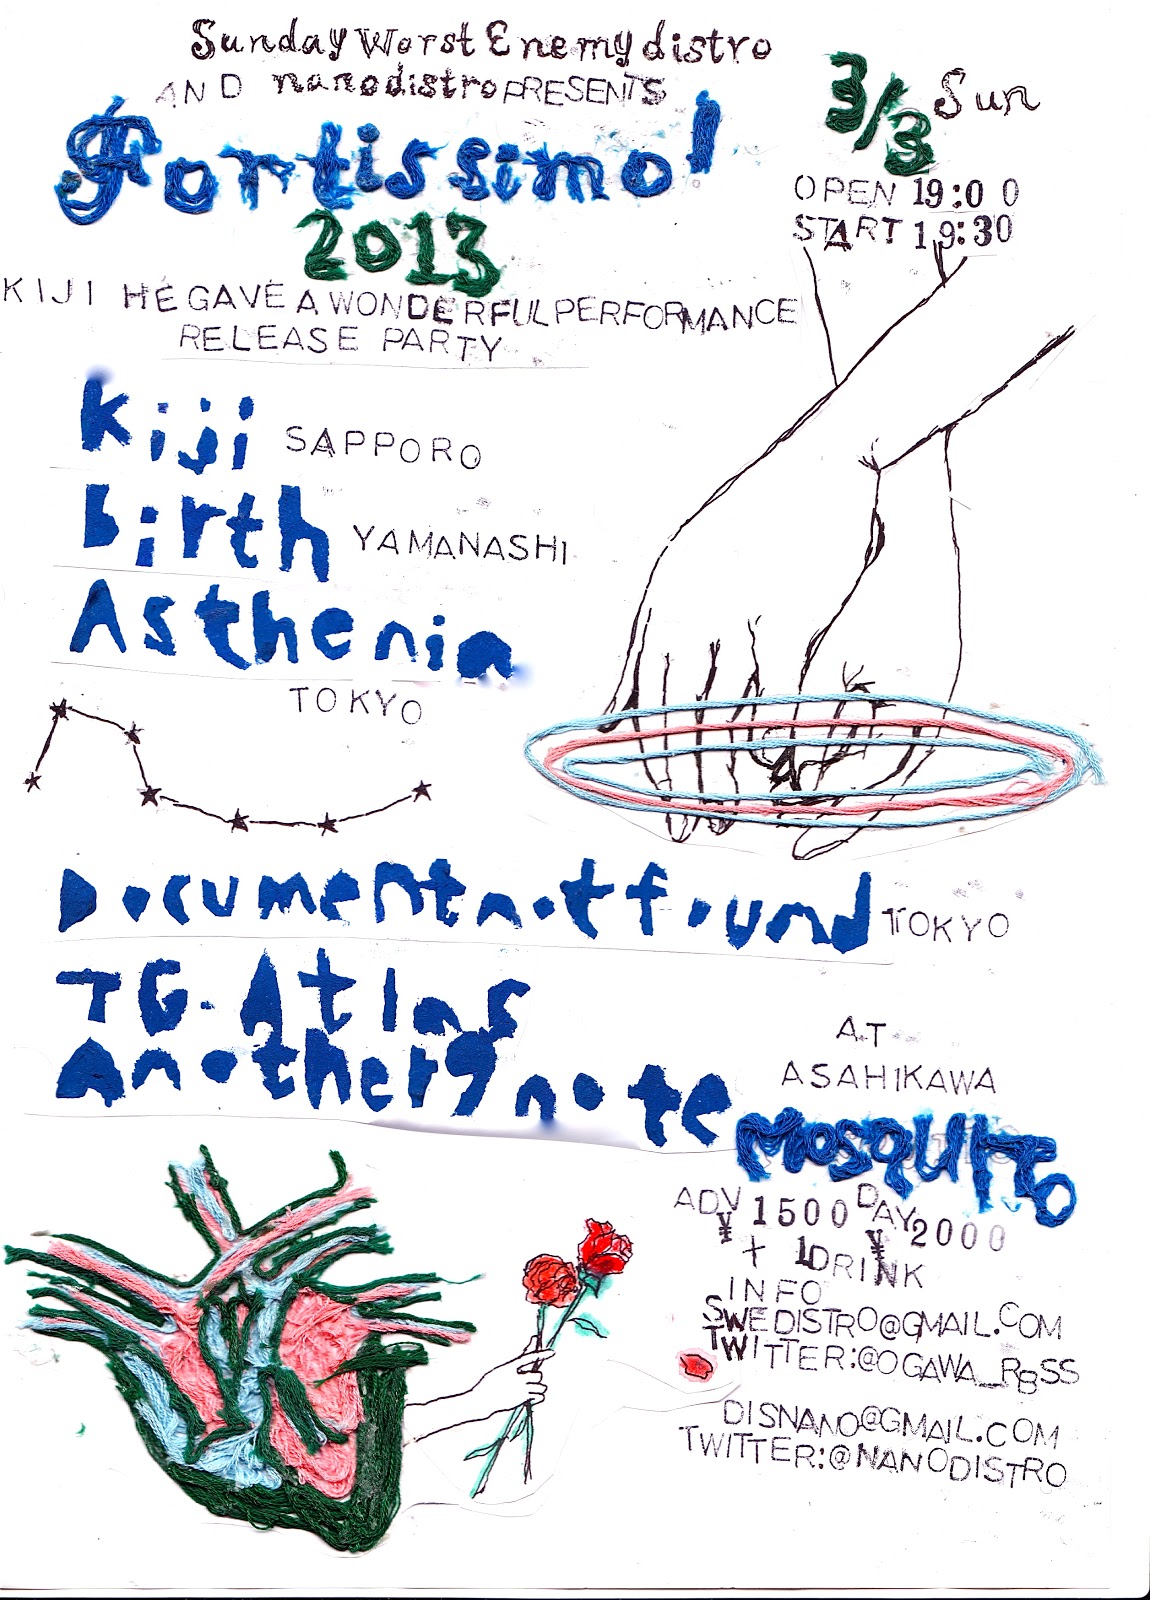 Sunday Worst Enemy distro
AND nanodistro PRESENTS
Fortissimo!
2013
3/3 Sun
OPEN 19:00
START 19:30
KIJI HE GAVE A WONDERFUL PERFORMANCE
RELEASE PARTY
kiji SAPPORO
birth YAMANASHI
Asthenia
TOKYO
Documentnotfound TOKYO
TG.Atlas
Another9note
AT
ASAHIKAWA
MOSQUITO
ADV ¥1500 DAY ¥2000
+ 1DRINK
INFO
SWEDISTRO@GMAIL.COM
TWITTER:@OGAWA_RBSS
DISNANO@GMAIL.COM
TWITTER:@NANODISTRO